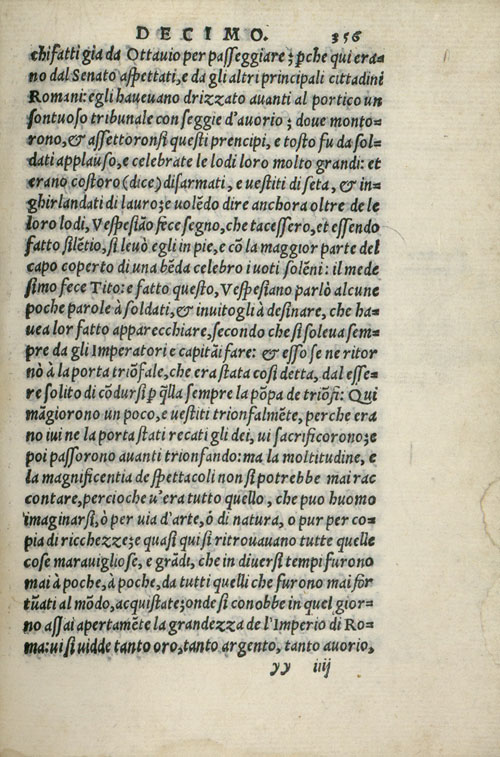 DECIMO. 356
chi fatti gia da Ottavio per passeggiare; pche qui era=
no dal Senato aspettati, e da gli altri principali cittadini
Romani: egli haueuano drizzato auanti al portico un
sontuoso tribunale con seggie d'auorio; doue monto=
rono, & assettoronsi questi prencipi, e tosto fu da sol=
dati applauso, e celebrate le lodi loro molto grandi: et
erano costoro (dice) disarmati, e uestiti di seta, & in=
ghirlandati di lauro; e uolēdo dire anchora oltre de le
loro lodi, Vespesiāo fece segno, che tacessero, et essendo
fatto silētio, si leuò egli in pie, e cō la maggior parte del
capo coperto di una bēda celebro i uoti solēni: il mede
simo fece Tito: e fatto questo, Vespesiano parlò alcune
poche parole à soldati, & inuitogli à desinare, che ha=
uea lor fatto apparecchiare, secondo che si soleua sem=
pre da gli Imperatori e capitāi fare: & esso se ne ritor
nò à la porta triōfale, che era stata cosi detta, dal esse=
re solito di cōdursi p q̄lla sempre la pōpa de triōfi: Qui
māgiorono un poco, e uestiti trionfalmēte, perche era
no iui ne la porta stati recati gli dei, ui sacrificorono; e
poi passorono auanti trionfando: ma la moltitudine, e
la magnificentia de spettacoli non si potrebbe mai rac
contare, percioche u'era tutto quello, che puo huomo
imaginarsi, ò per uia d'arte, ò di natura, o pur per co=
pia di ricchezze; e quasi qui si ritrouauano tutte quelle
cose marauigliose, e grādi, che in diuersi tempi furono
mai à poche, à poche, da tutti quelli che furono mai for
tūati al mōdo, acquistate; onde si conobbe in quel gior=
no assai apertamēte la grandezza de l'Imperio di Ro=
ma: ui si uidde tanto oro, tanto argento, tanto auorio,
yy iiij